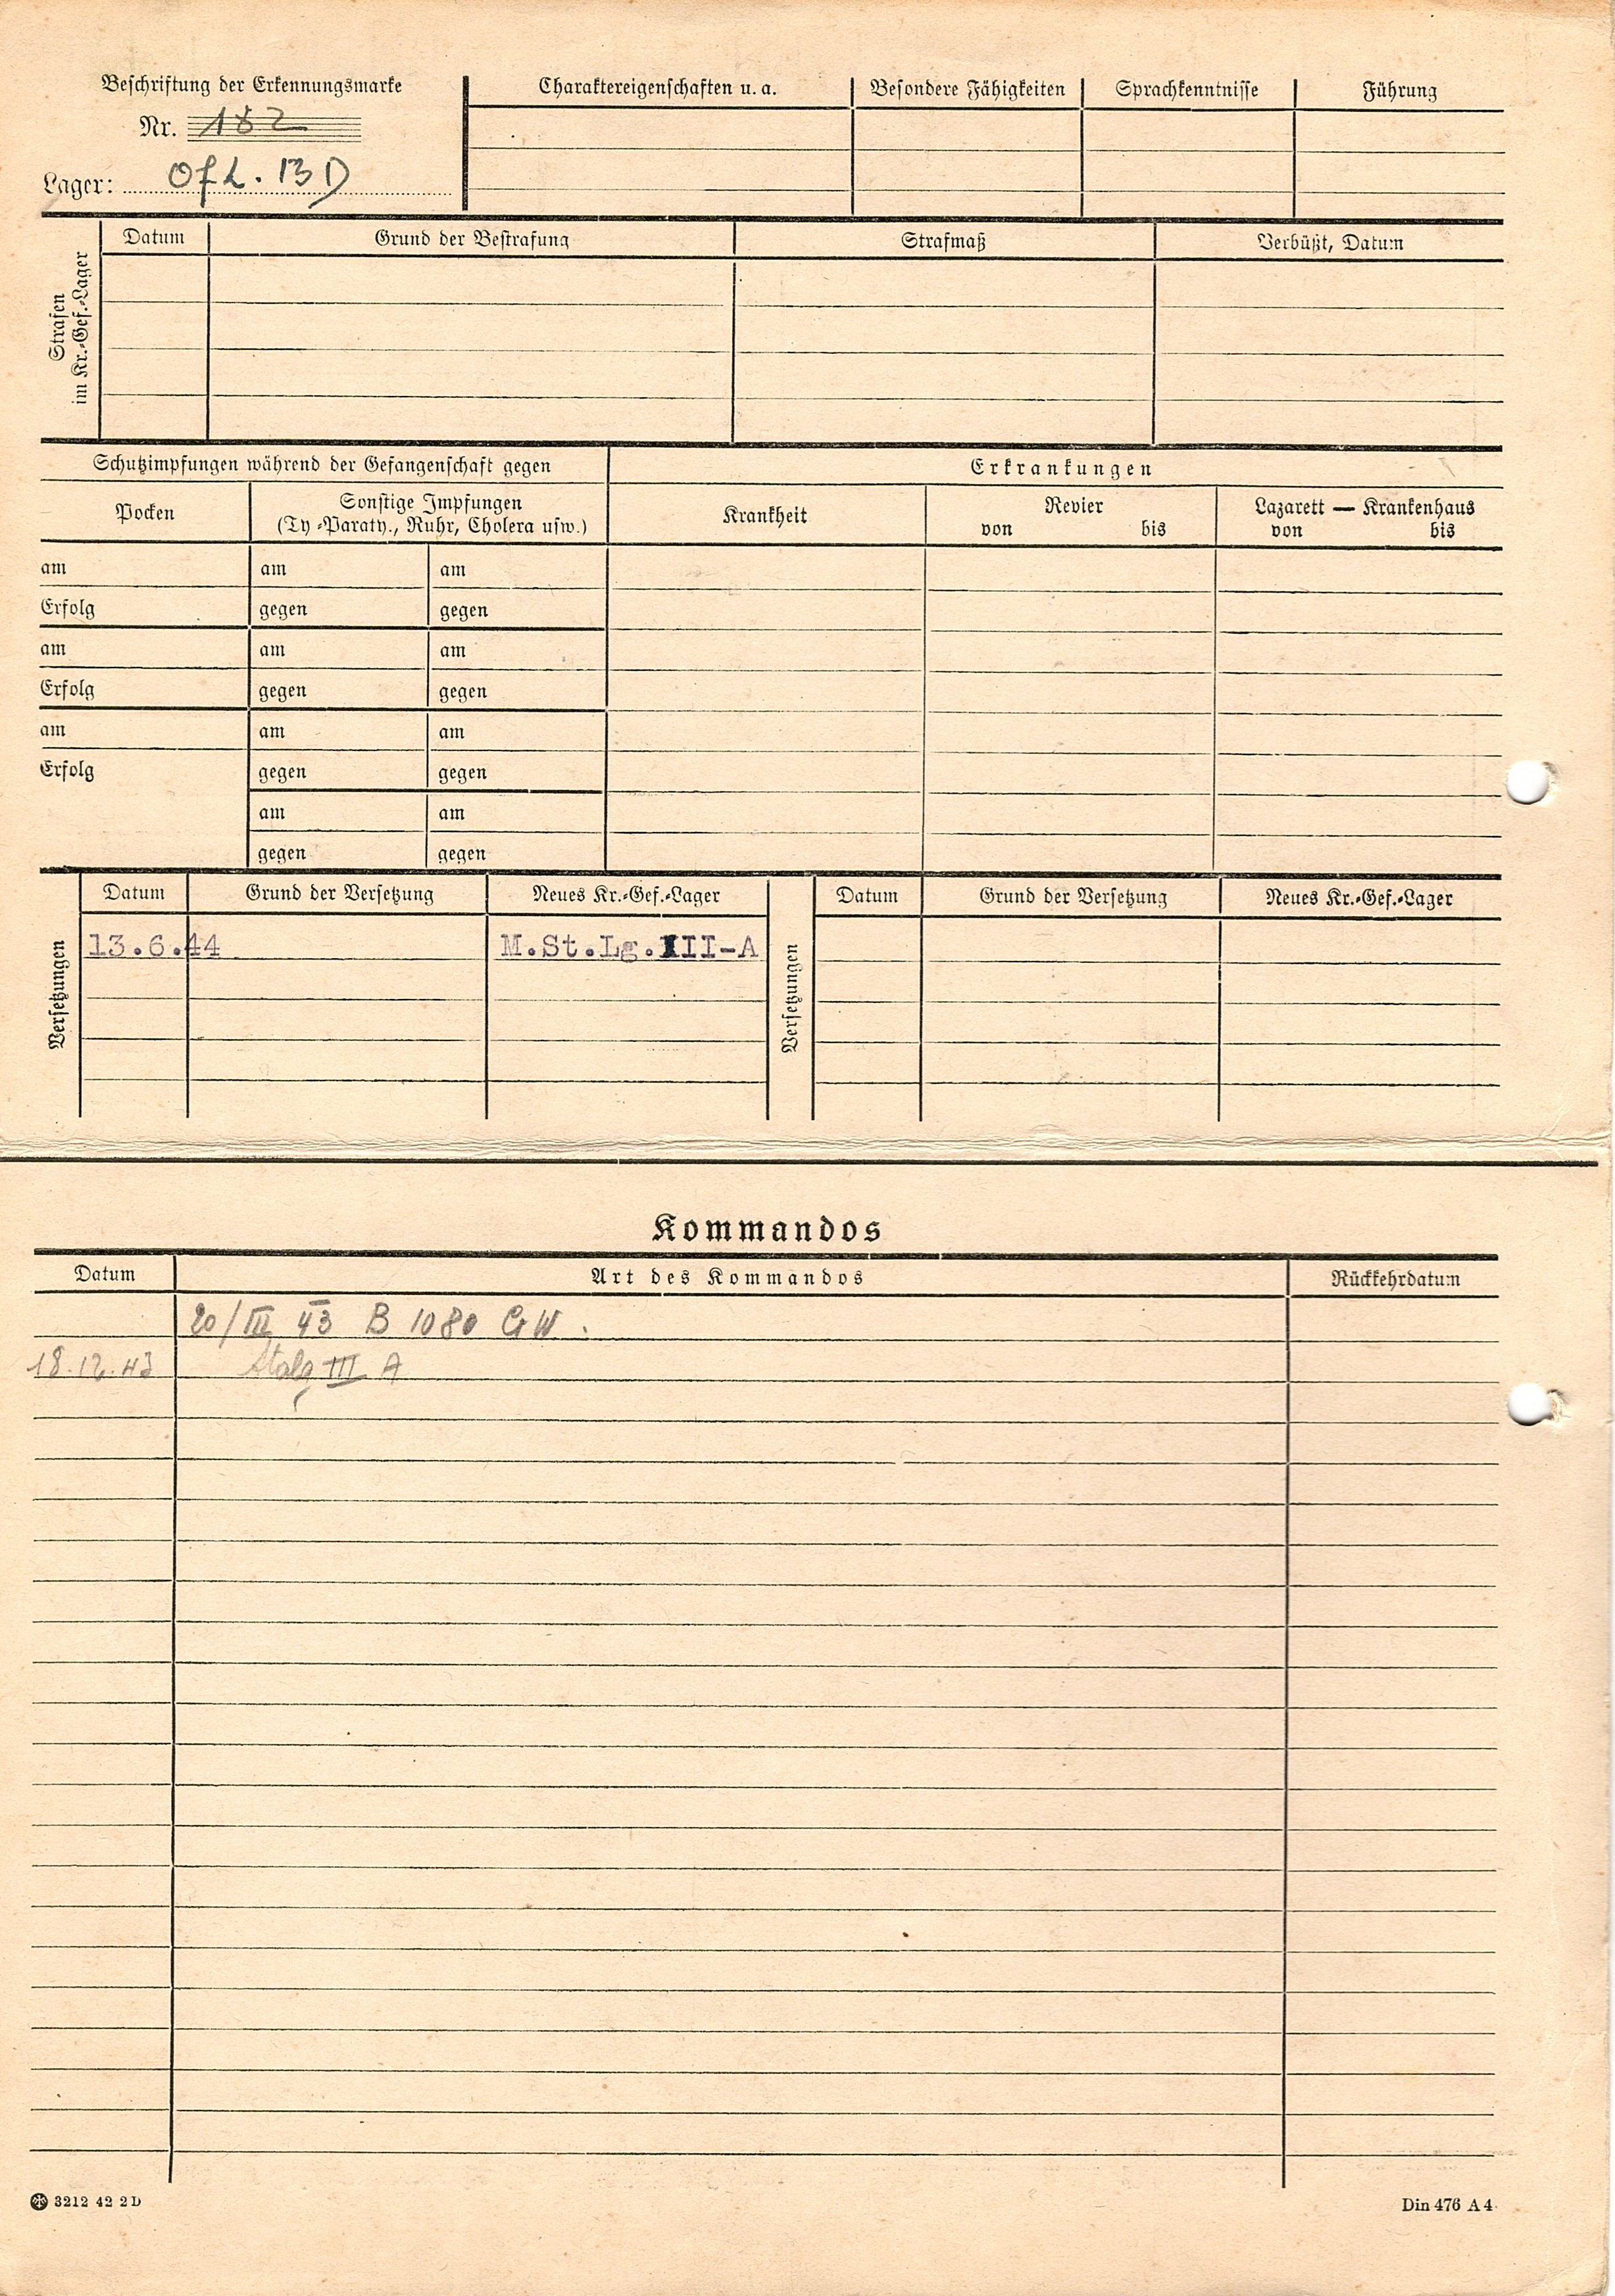 Beschriftung der Erkennungsmarke
Nr. 182
Lager: Ofl. 13 D
Charaktereigenschaften u. a.
Besondere Fähigkeiten
Sprachkenntnisse
Führung
Strafen
im Kr.-Gef.-Lager
Datum
Grund der Bestrafung
Strafmaß
Verbüßt, Datum
Schutzimpfungen während der Gefangenschaft gegen
Erkrankungen
Pocken
Sonstige Impfungen
(Ty-Paraty., Ruhr, Cholera usw.)
Krankheit
Revier
von bis
Lazarett — Krankenhaus
von bis
am am am
Erfolg gegen gegen
am am am
Erfolg gegen gegen
am am am
Erfolg gegen gegen
am am
gegen gegen
Versetzungen
Datum Grund der Versetzung Neues Kr.-Gef.-Lager
13.6.44 M.St.Lg.III-A
Versetzungen
Datum Grund der Versetzung Neues Kr.-Gef.-Lager
Kommandos
Datum Art des Kommandos Rückkehrdatum
20/III 43 B 1080 GW.
18.12.43 Stalg III A
3212 42 2D
Din 476 A 4